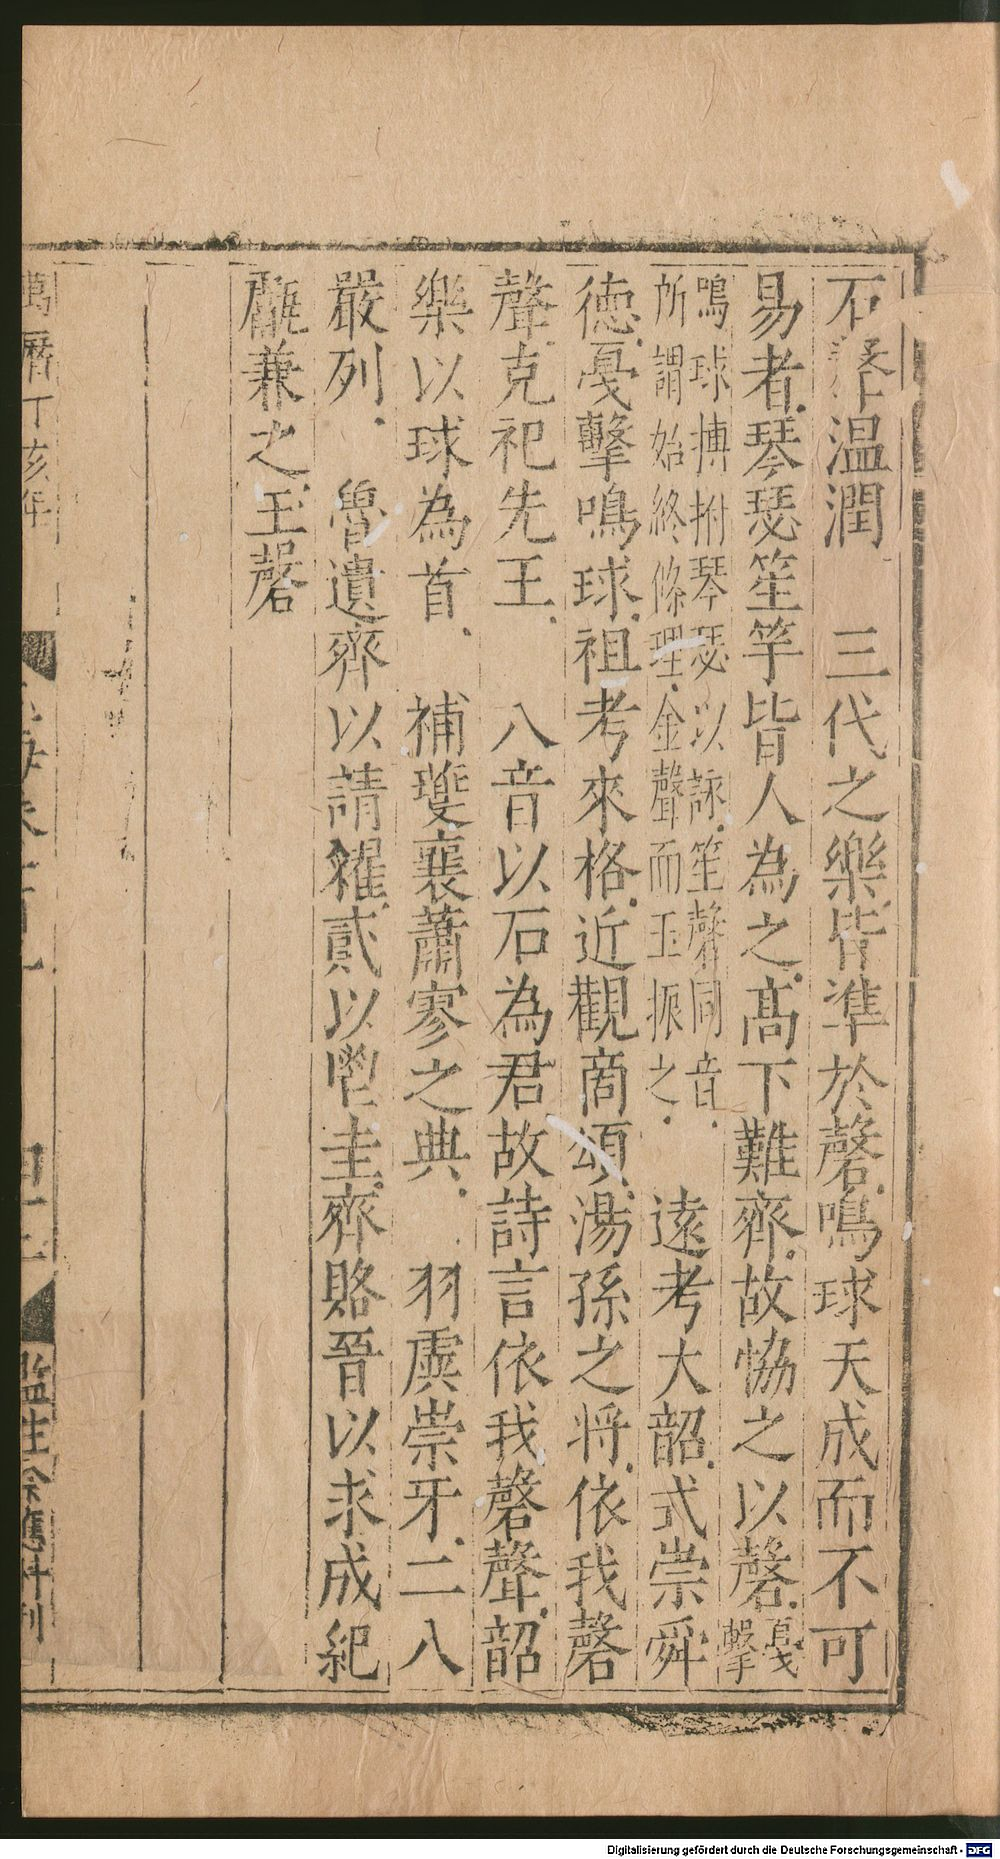 石聲温潤　三代之樂皆準於磬鳴球天成而不可
易者琴瑟笙竽皆人為之高下難齊故協之以磬戛擊
鳴球搏拊琴瑟以詠笙磬同音
所謂始終條理金聲而玉振之　遠考大韶式崇舜
德戛擊鳴球祖考來格近觀商頌湯孫之將依我磬
聲克祀先王　八音以石為君故詩言依我磬聲韶
樂以球為首　補夔襄蕭寥之典　羽虡崇牙二八
嚴列　魯遺齊以請糴貳以鬯圭齊賂晉以求成紀
甗兼之玉磬
萬曆丁亥年
監生徐應科刊
Digitalisierung gefördert durch die Deutsche Forschungsgemeinschaft - DFG